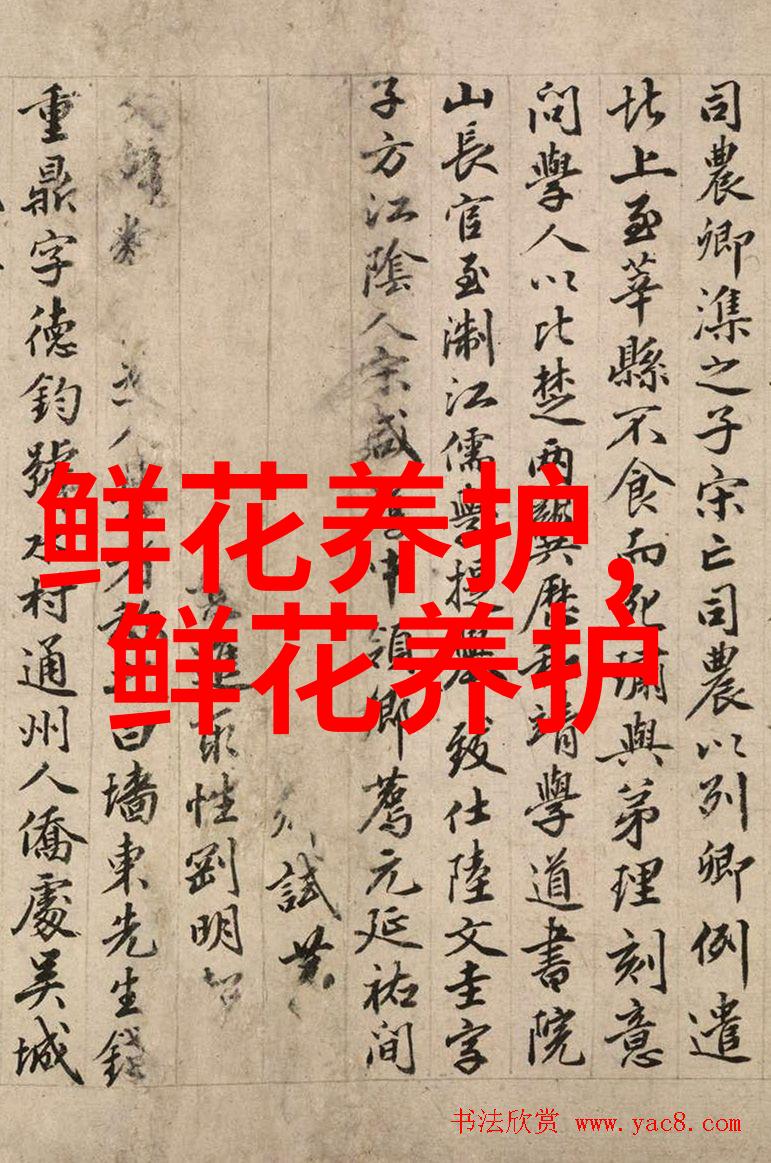 司農卿潗之子宋亡司農以列卿例遣
北上至莘縣不食而死潚與弟理刻意
問學人以比楚兩龔歷和靖學道書院
山長官至淛江儒學提舉致仕陸文圭字
子方江陰人宋咸中領鄉薦元延祐間
試
進取性剛明
人曰墻東先生錢
重鼎字德鈞號水村通州人僑處吳城
鲜花养护,
鲜花养护
书法欣赏 www.yac8.com